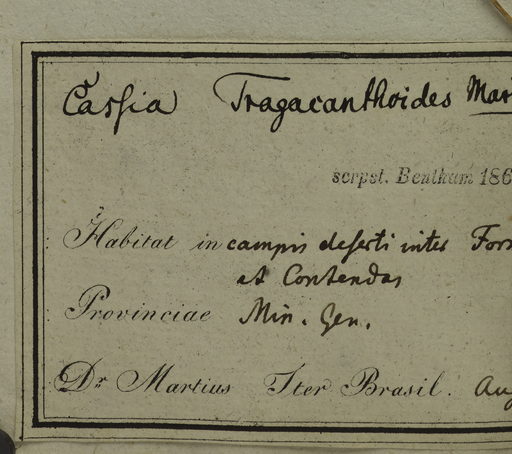 Caſsia Tragacanthoides Mar
scrpst. Bentham 186
Habitat in campis deſerti inter Form
et Contendas
Provinciae Min. Gen.
Dr Martius Iter Brasil. Aug